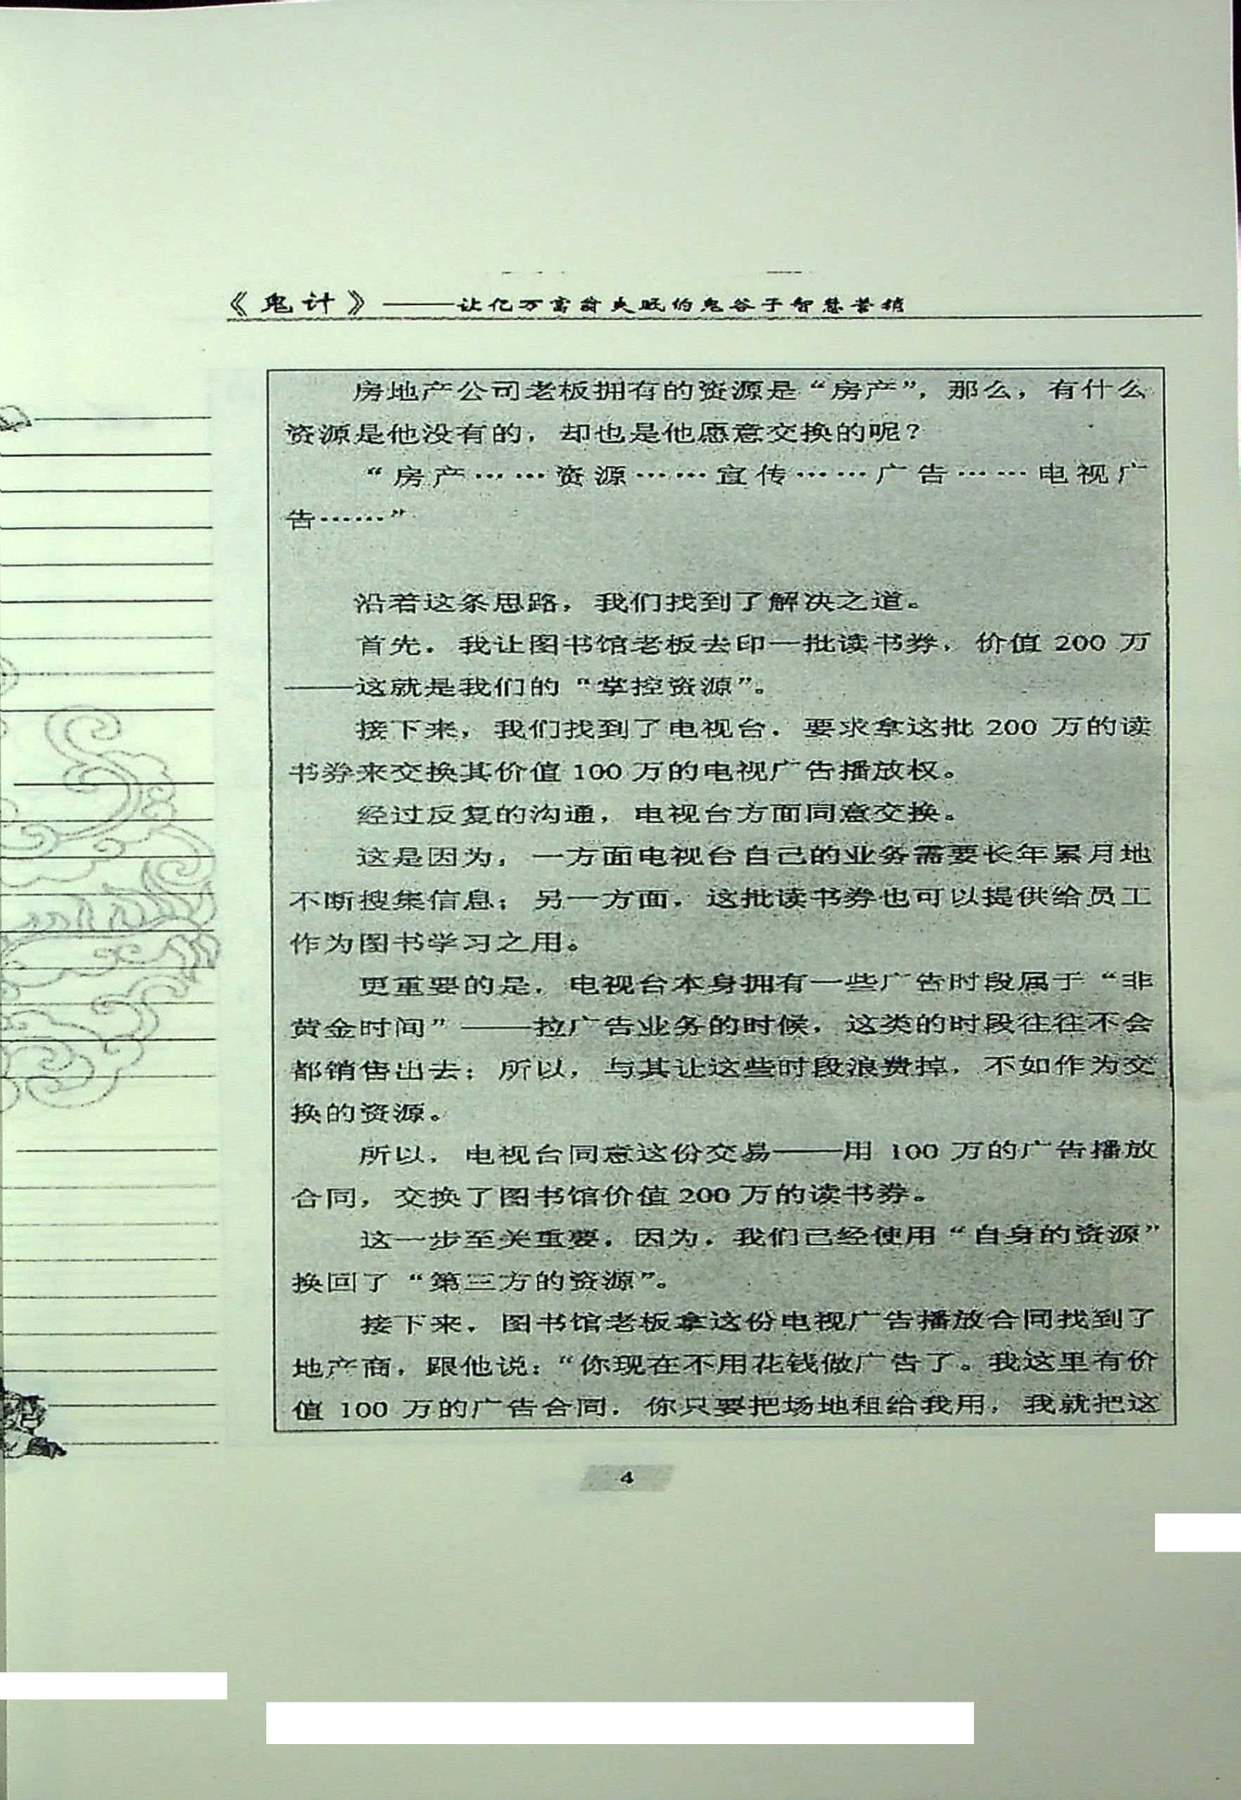 《鬼计》——让亿万富翁失眠的鬼谷子智慧营销
房地产公司老板拥有的资源是“房产”，那么，有什么
资源是他没有的，却也是他愿意交换的呢？
“房产……资源……宣传……广告……电视广
告……”
沿着这条思路，我们找到了解决之道。
首先，我让图书馆老板去印一批读书券，价值 200 万
——这就是我们的“掌控资源”。
接下来，我们找到了电视台，要求拿这批 200 万的读
书券来交换其价值 100 万的电视广告播放权。
经过反复的沟通，电视台方面同意交换。
这是因为，一方面电视台自己的业务需要长年累月地
不断搜集信息；另一方面，这批读书券也可以提供给员工
作为图书学习之用。
更重要的是，电视台本身拥有一些广告时段属于“非
黄金时间”——拉广告业务的时候，这类的时段往往不会
都销售出去；所以，与其让这些时段浪费掉，不如作为交
换的资源。
所以，电视台同意这份交易——用 100 万的广告播放
合同，交换了图书馆价值 200 万的读书券。
这一步至关重要，因为，我们已经使用“自身的资源”
换回了“第三方的资源”。
接下来，图书馆老板拿这份电视广告播放合同找到了
地产商，跟他说：“你现在不用花钱做广告了。我这里有价
值 100 万的广告合同，你只要把场地租给我用，我就把这
4